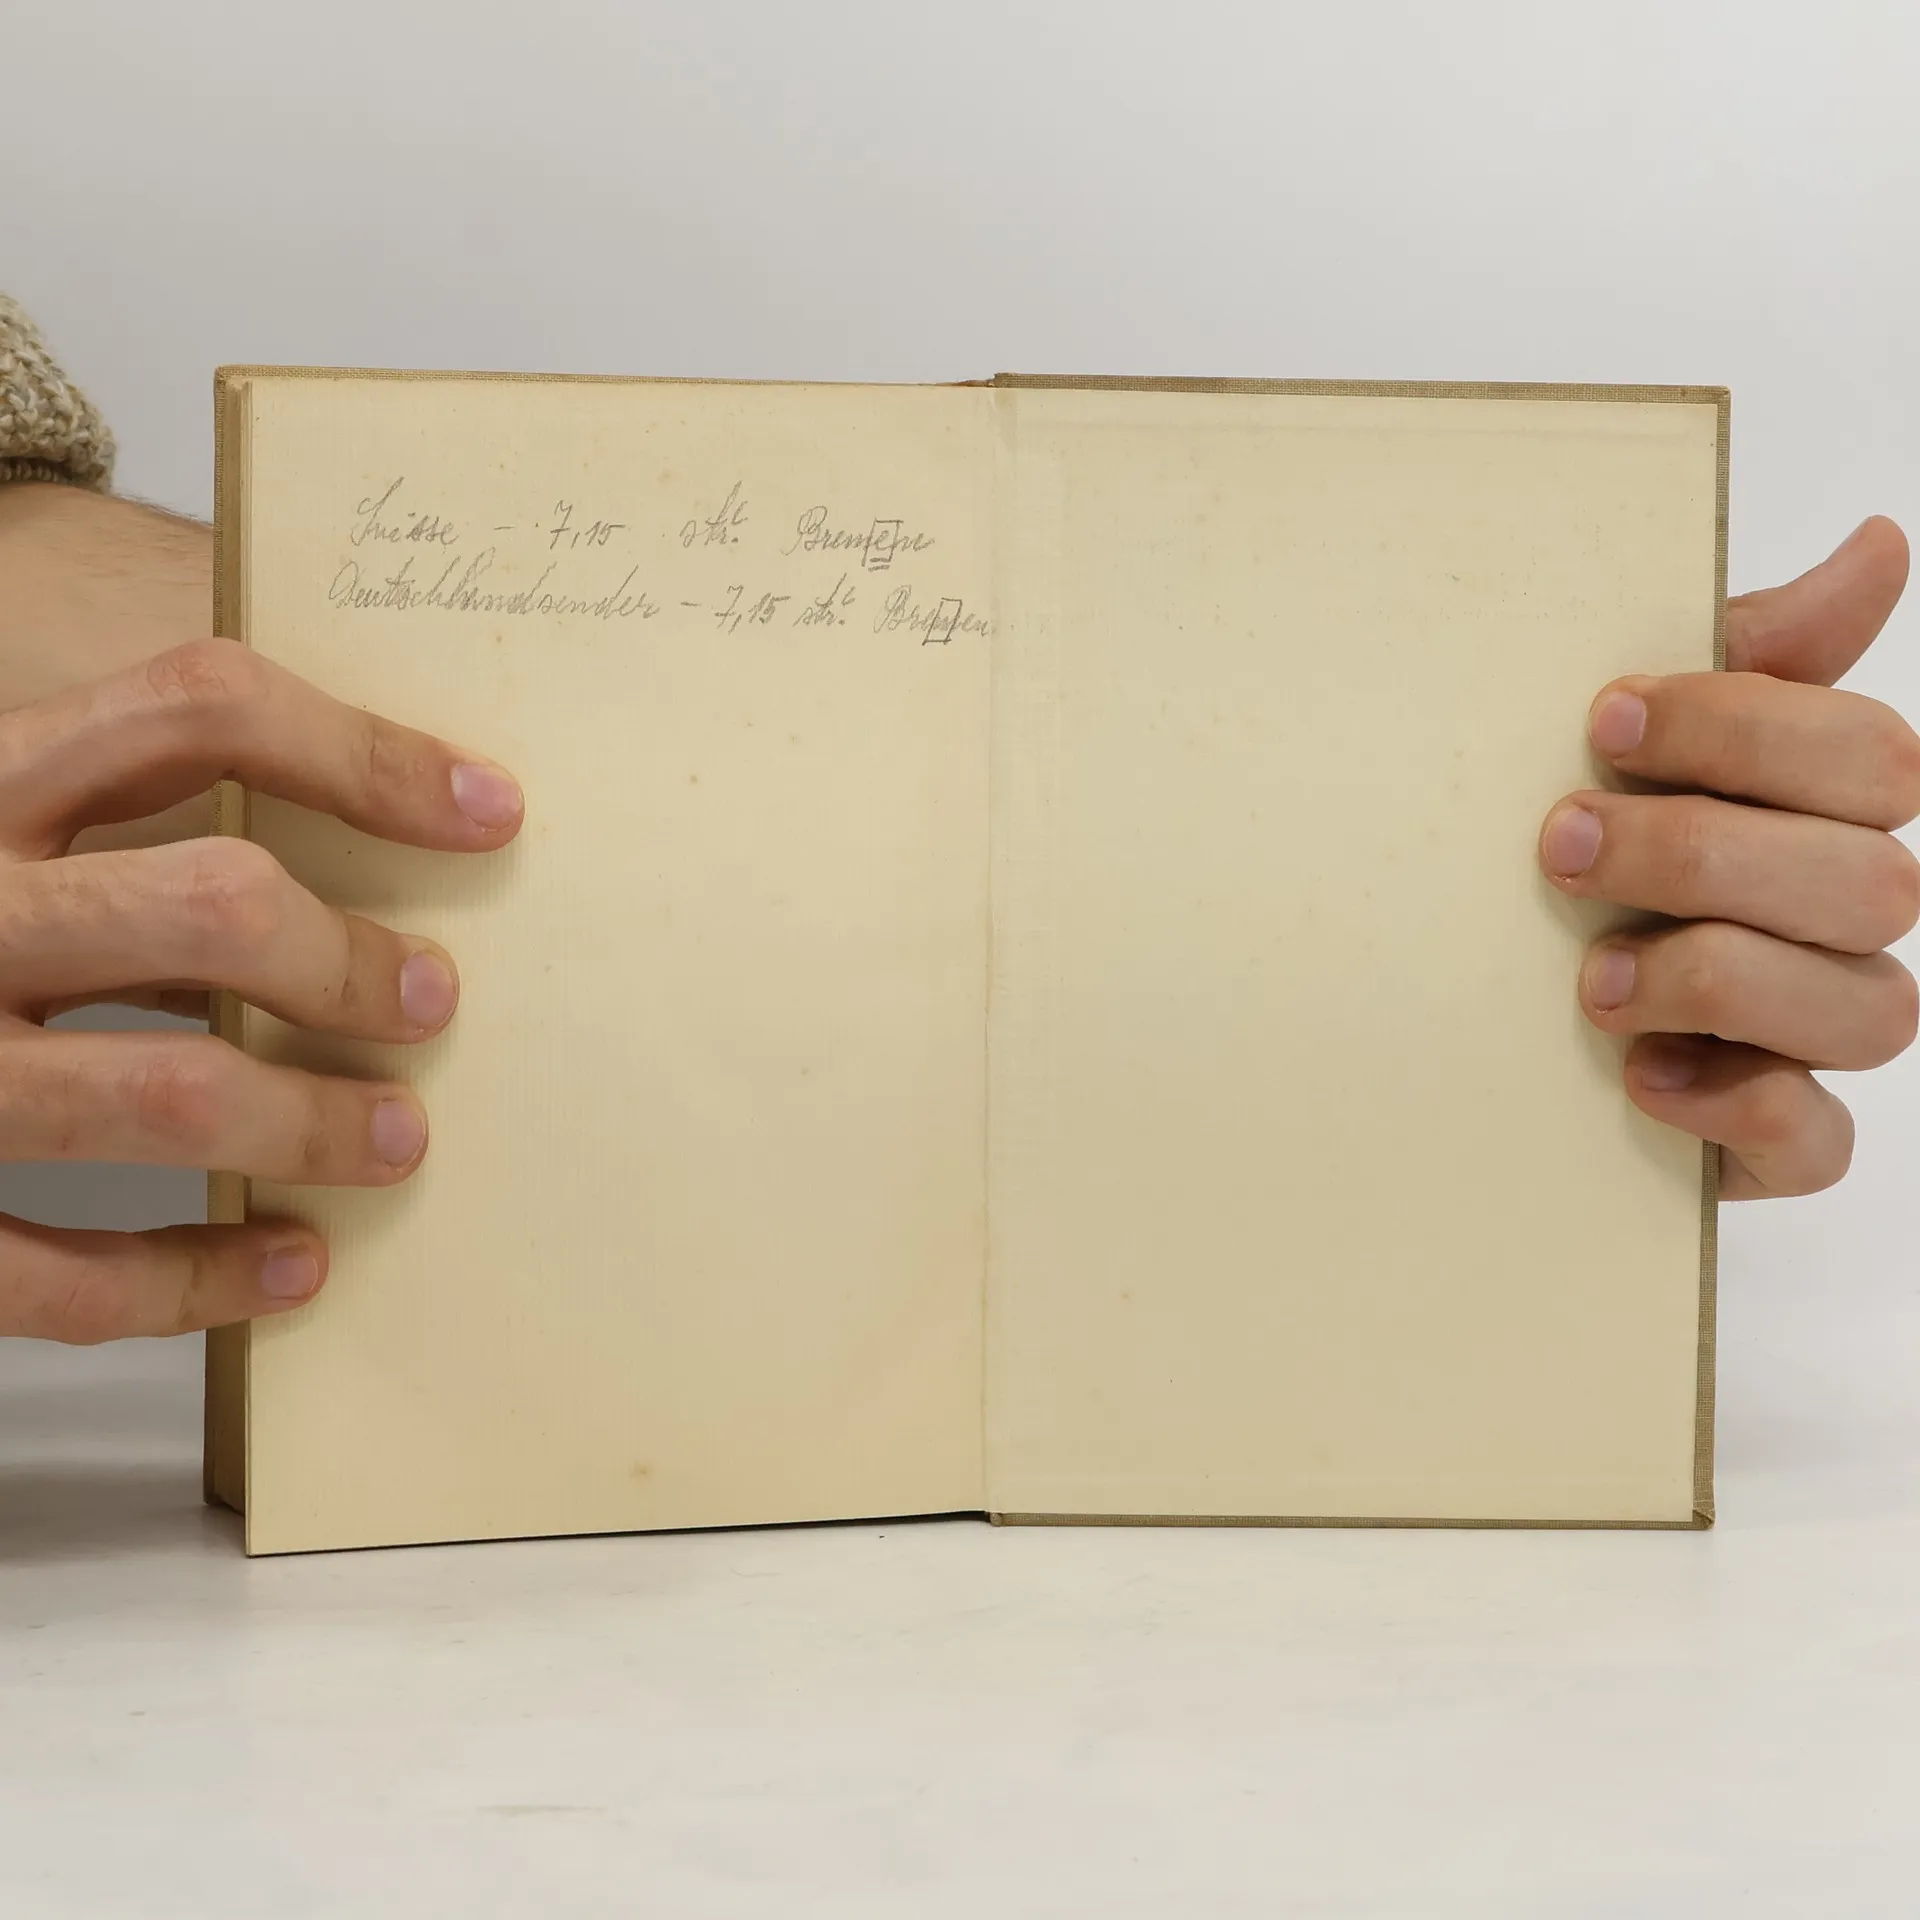 Suisse – 7,15 stř. Brem[e]n
Deutschlandsender – 7,15 stř. Bre[m]en